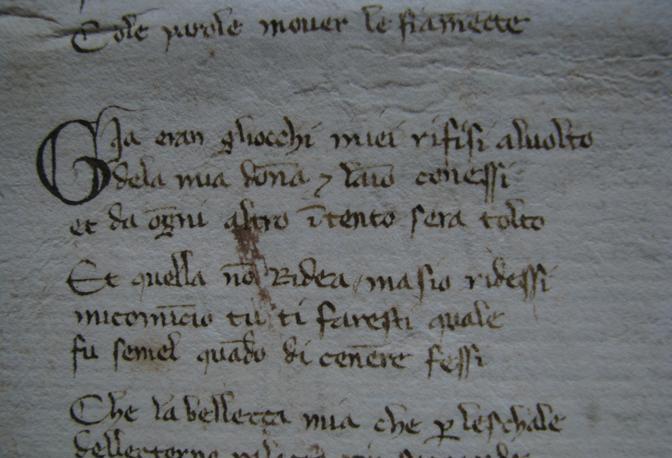 Cole parole mover le fiamēcte
Gia eran gliocchi miei rifisi aluolto
dela mia dōna ⁊ laīo cōnessi
et da ōgni altro ītento sera tolto
Et quella nō Ridea ma sio ridessi
micomīcio tu ti faresti quale
fu semel quādo di cenēre fessi
Che la bellecca mia che ꝑ leschale
dellecterno